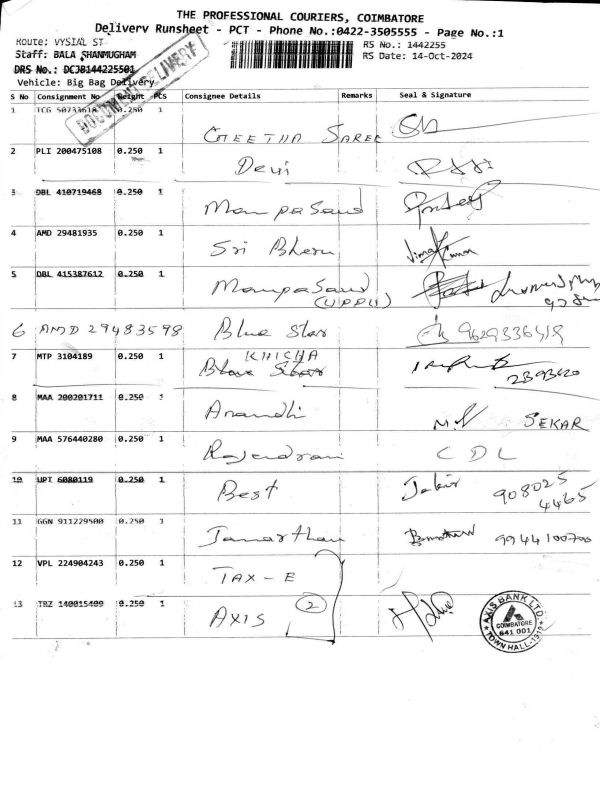 THE PROFESSIONAL COURIERS, COIMBATORE
Delivery Runsheet - PCT - Phone No.:0422-3505555 - Page No.:1
Route: VYSIAL ST
RS No.: 1442255
Staff: BALA SHANMUGHAM
RS Date: 14-Oct-2024
DRS No.: DCJB144225501
Vehicle: Big Bag Delivery
DOCUMENT DELIVERY
S No Consignment No Weight PCS Consignee Details Remarks Seal & Signature
1 TCG 50733618 0.250 1 CHEETHA SAREE
2 PLI 200475108 0.250 1 Devi
3 DBL 410719468 0.250 1 Mampasand
4 AMD 29481935 0.250 1 Sri Bheru Vimal Kumar
5 DBL 415387612 0.250 1 Mampasand
(UPPU)
6 AMD 29483598 Blue Star 9629336419
7 MTP 3104189 0.250 1 KHICHA
Blue Star 2393620
8 MAA 200201711 0.250 1 Anandhi SEKAR
9 MAA 576440280 0.250 1 Rajendran CDL
10 UPT 6080119 0.250 1 Best Jakir 908025
4465
11 GGN 911229500 0.250 1 Janarthan 9944100700
12 VPL 224904243 0.250 1 TAX-E
13 TRZ 140015409 0.250 1 AXIS 2
AXIS BANK LTD
COIMBATORE
641 001
TOWN HALL-1919